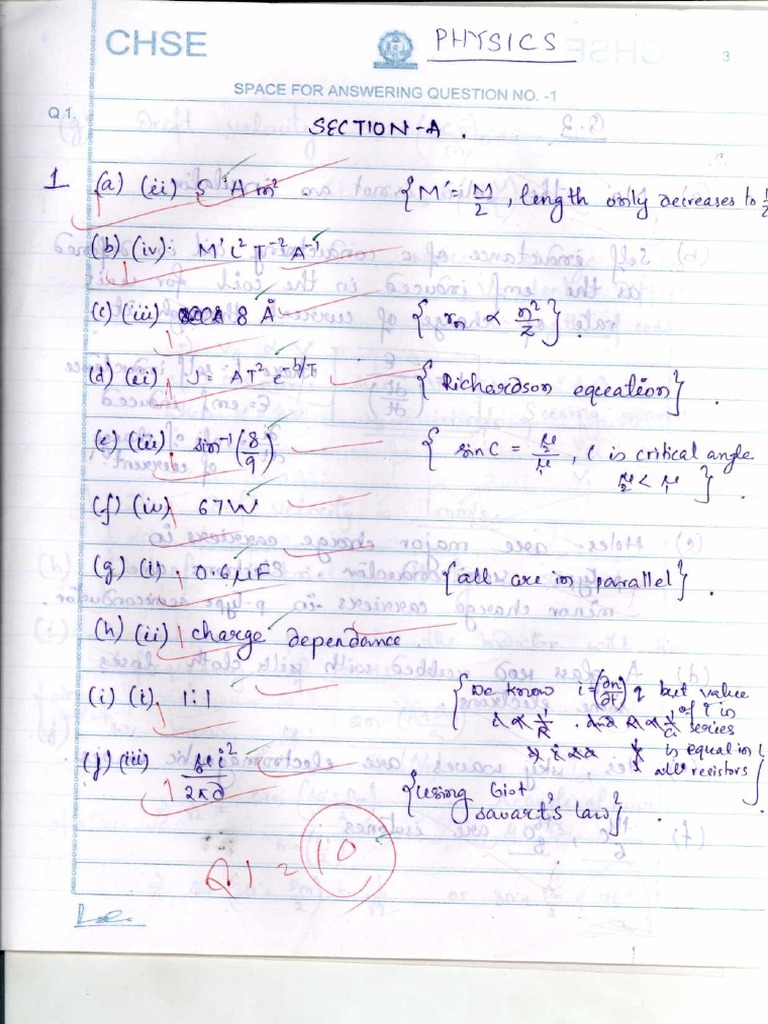 CHSE
PHYSICS
3
SPACE FOR ANSWERING QUESTION NO. -1
Q.1.
SECTION-A.
1 (a) (ii) 5 A m² . {M' = M/2, length only decreases to 1/2
(b) (iv): M¹ L² T⁻² A⁻¹
(c) (iii) 8 Å {rₙ ∝ n²/Z}.
(d) (ii) J = AT² e^(-b/T) {Richardson equation}.
(e) (iii) sin⁻¹(8/9) { sin C = μ₂/μ₁, C is critical angle
μ₂ < μ₁ }.
(f) (iv) 67W
(g) (i) 0.6 μF {all are in parallel}.
(h) (ii) charge dependance.
(i) (i) 1:1 {We know i = (∂n/∂t) q but value
of i in
series
is equal in
all resistors}
(j) (iii) μ i²/2πd {using Biot
Savart's law}.
1
Q.1 = 10
1